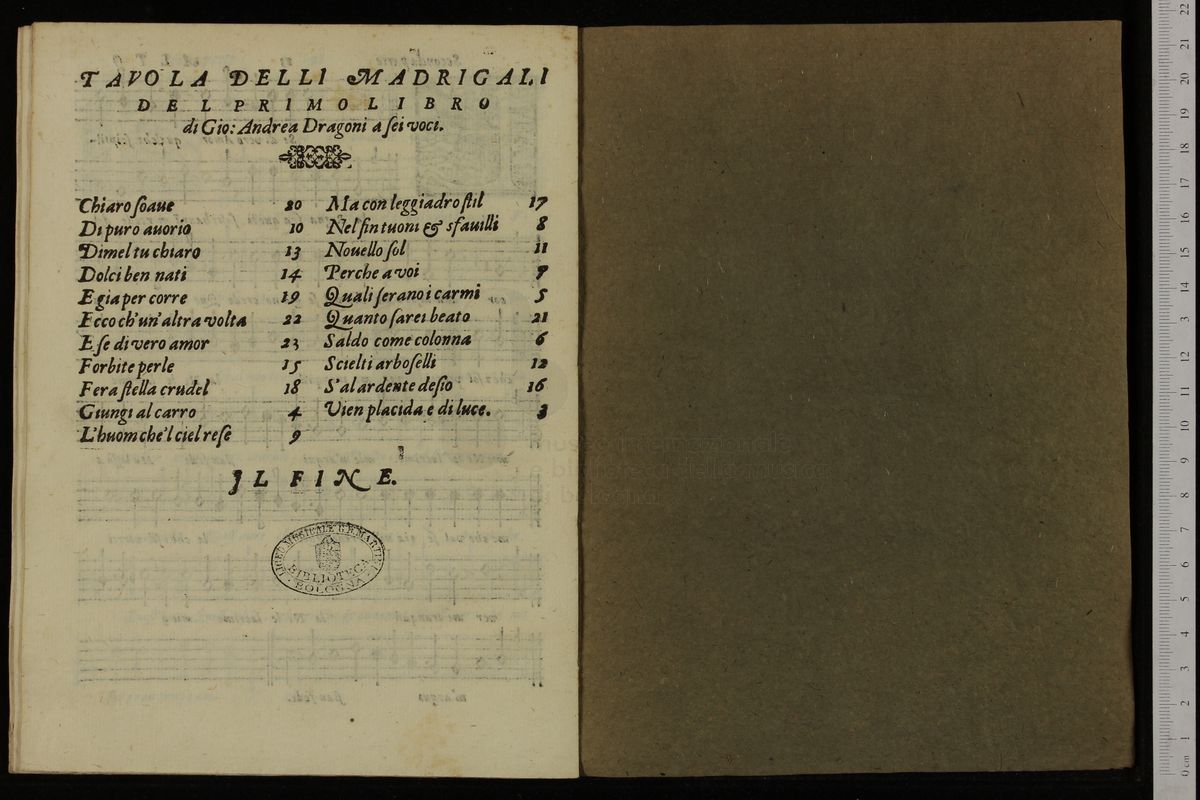 TAVOLA DELLI MADRIGALI
DEL PRIMO LIBRO
di Gio: Andrea Dragoni a ſei voci.
Chiaro ſoaue 20
Di puro auorio 10
Dimel tu chiaro 13
Dolci ben nati 14
E gia per corre 19
Ecco ch'un'altra volta 22
E ſe di vero amor 23
Forbite perle 15
Fera ſtella crudel 18
Giungi al carro 4
L'huom che'l ciel reſe 9
Ma con leggiadro ſtil 17
Nel fin tuoni & sfauilli 8
Nouello ſol 11
Perche a voi 7
Quali ſerano i carmi 5
Quanto ſarei beato 21
Saldo come colonna 6
Scielti arboſelli 12
S'al ardente deſio 16
Vien placida e di luce. 3
IL FINE.
LICEO MUSICALE G.B. MARTINI
BIBLIOTECA
BOLOGNA
0 cm 1 2 3 4 5 6 7 8 9 10 11 12 13 14 15 16 17 18 19 20 21 22